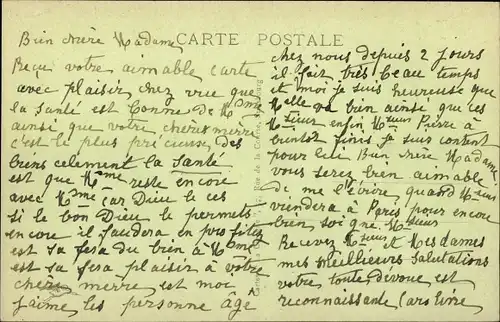 Bien chère Madame
CARTE POSTALE
Reçu votre aimable carte
avec plaisir chez vue que
la santé est bonne de Mme
ainsi que votre chère merre
c'est le plus précieuse des
biens celement la Santé
est que Mme reste encore
avec Mme car Dieu le ces
si le bon Dieu le permets
encore il faudera en profitez
est sa fera du bien à Mme
est sa fera plaisir à votre
chère merre est moi
j'aime les personne âgé
chez nous depuis 2 jours
il fait très beau temps
et moi je suis heureuse que
Melle va bien ainsi que ces
Msieur enfin Msieur Pierre à
bientot finis je suis contant
pour lui Bien chère Madame
vous serez bien aimable
de me l'écrire quand Msieur
viendera à Paris pour encore
bien soigne Msieur
Recevez Msieur et Mesdames
mes meilleures salutations
votre toute dévoué est
reconnaissante